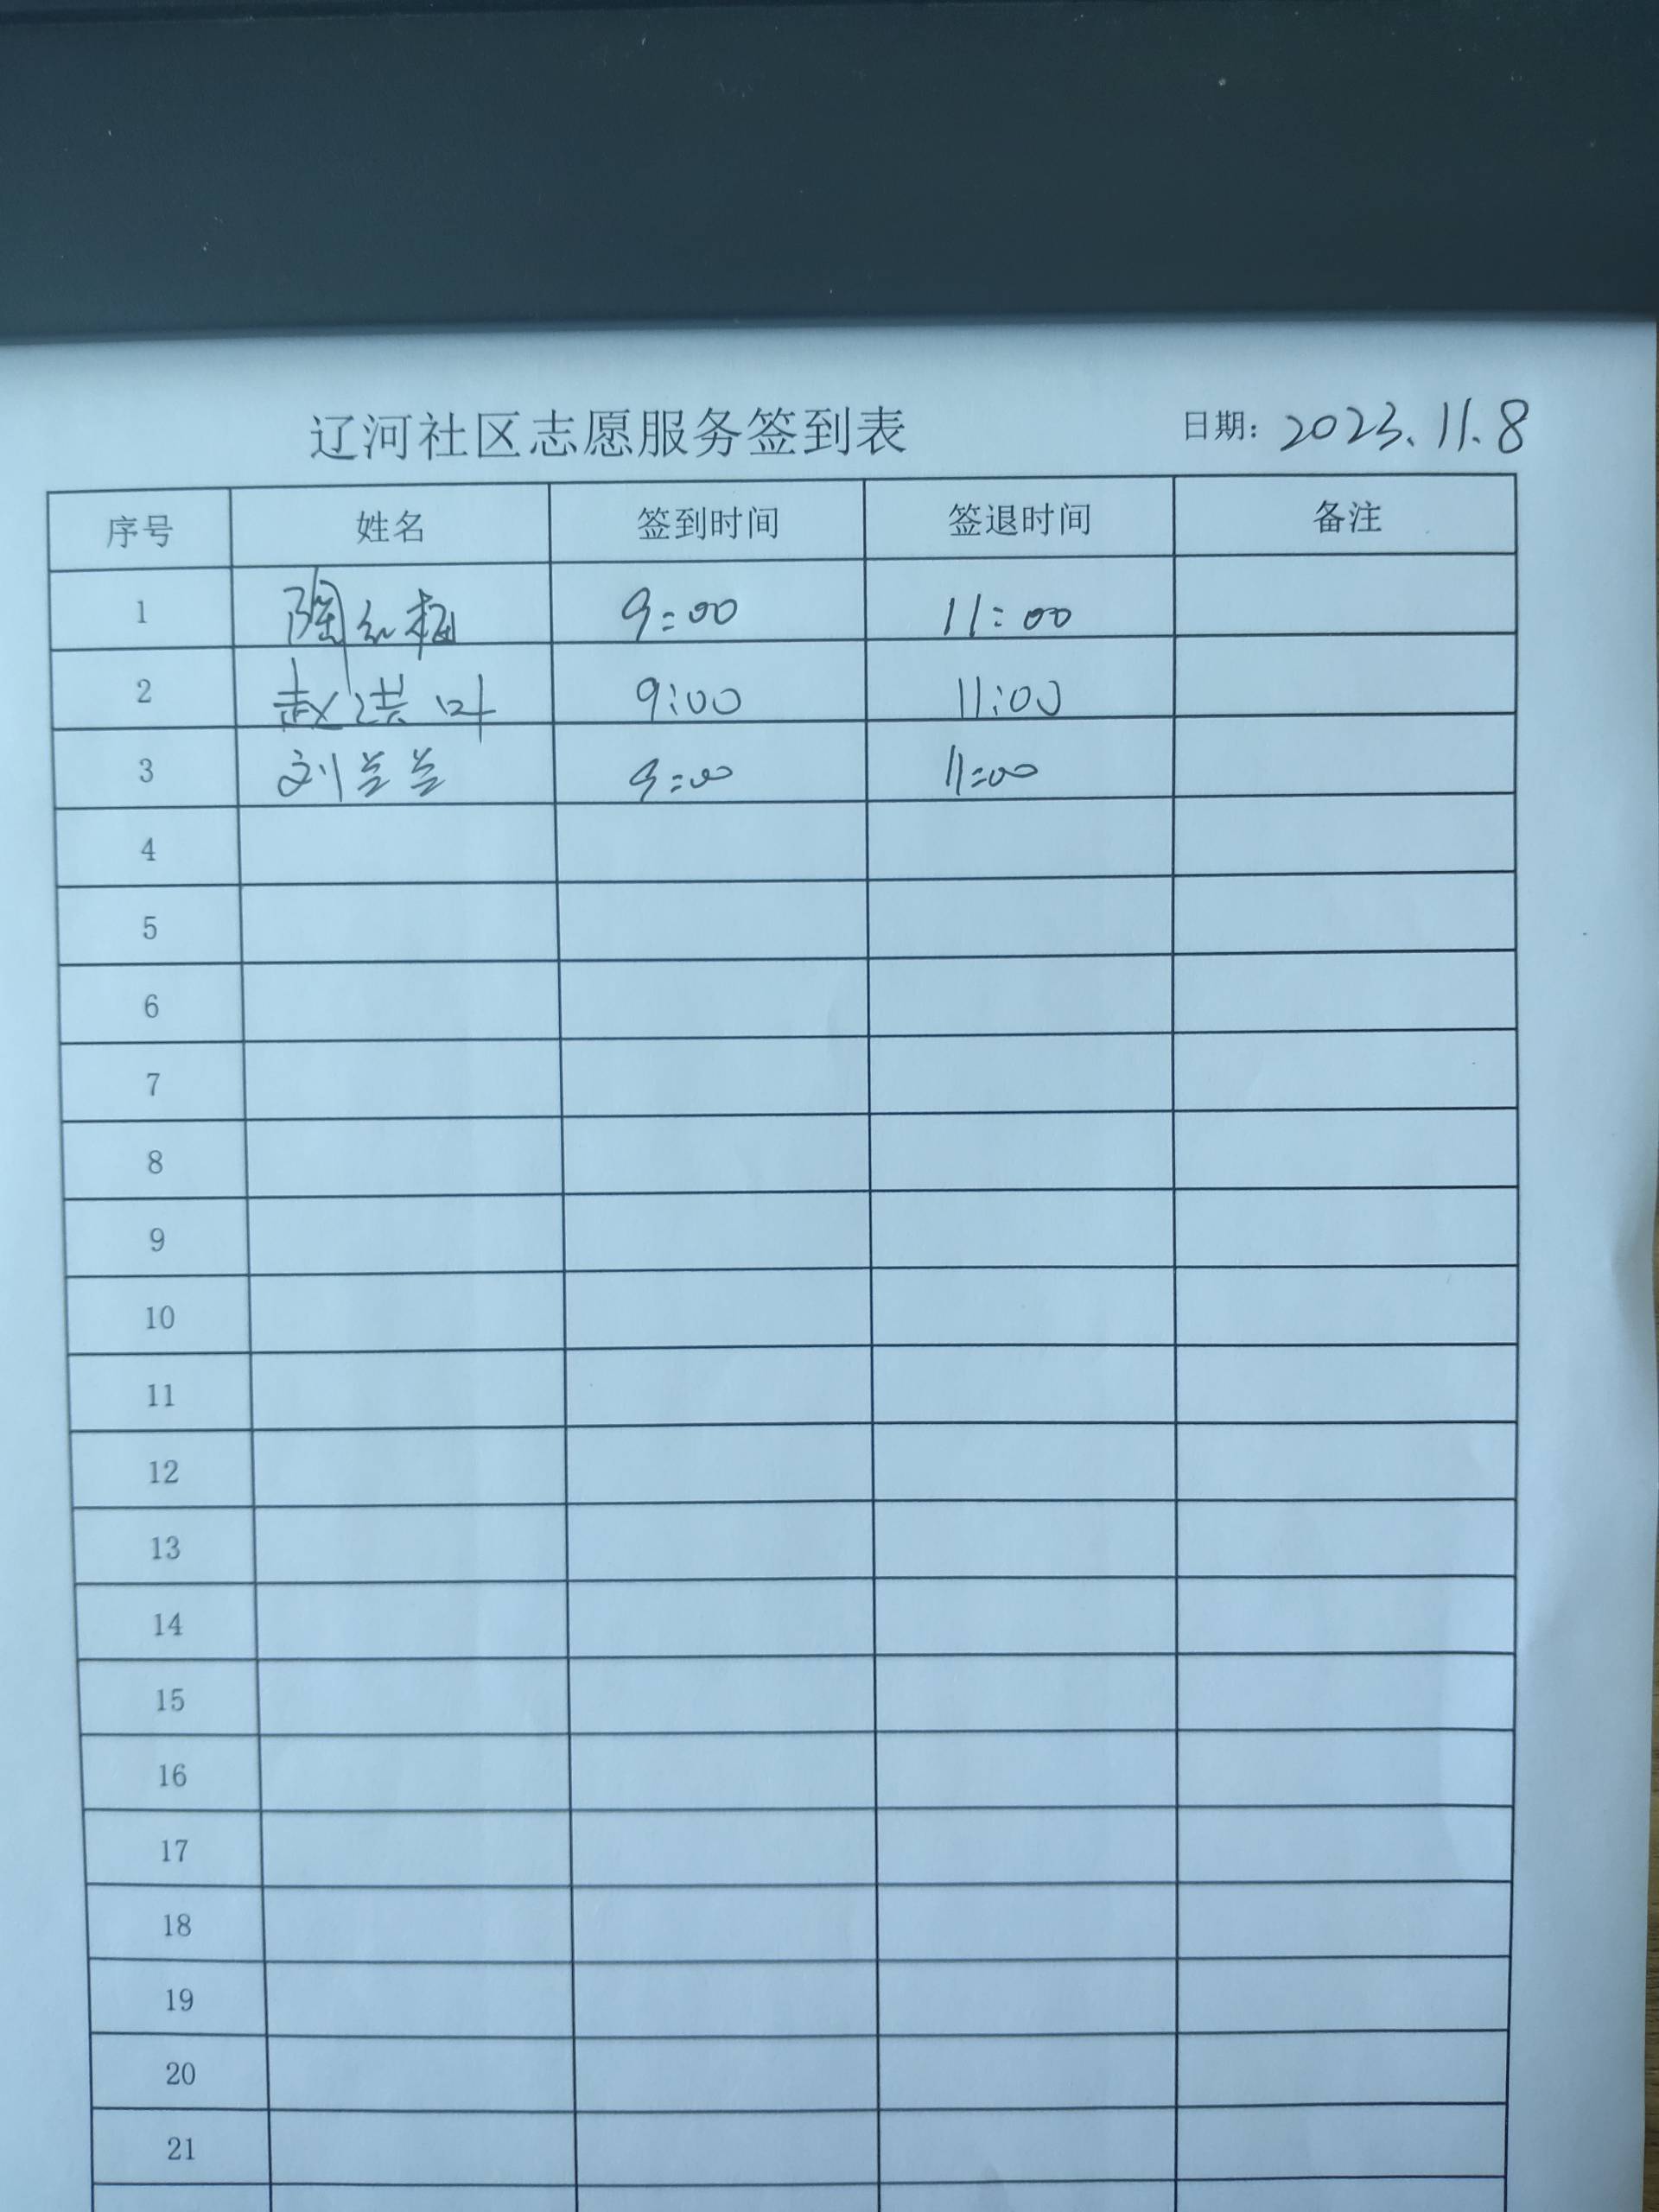 辽河社区志愿服务签到表 日期: 2023.11.8
序号 姓名 签到时间 签退时间 备注
1 陶红梅 9:00 11:00
2 赵洪叶 9:00 11:00
3 刘兰兰 9:00 11:00
4
5
6
7
8
9
10
11
12
13
14
15
16
17
18
19
20
21